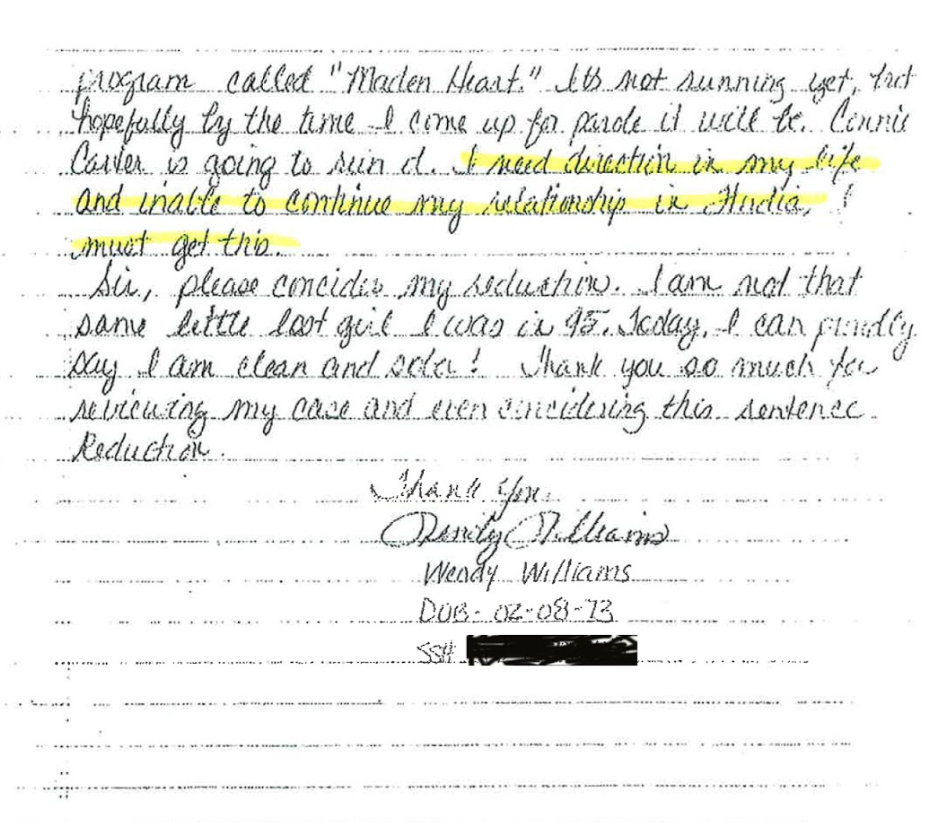 program called "Maden Heart." Its not running yet, but
hopefully by the time I come up for parole it will be. Connie
Carter is going to run it. I need direction in my life
and inable to continue my relationship in I
must get this.
Sir, please concider my reduction. I am not that
same little lost girl I was in 95. Today, I can proudly
say I am clean and sober! Thank you so much for
reviewing my case and even concidering this sentence
Reduction.
Thank You,
Wendy Williams
Wendy Williams
DOB- 02-08-73
SS#